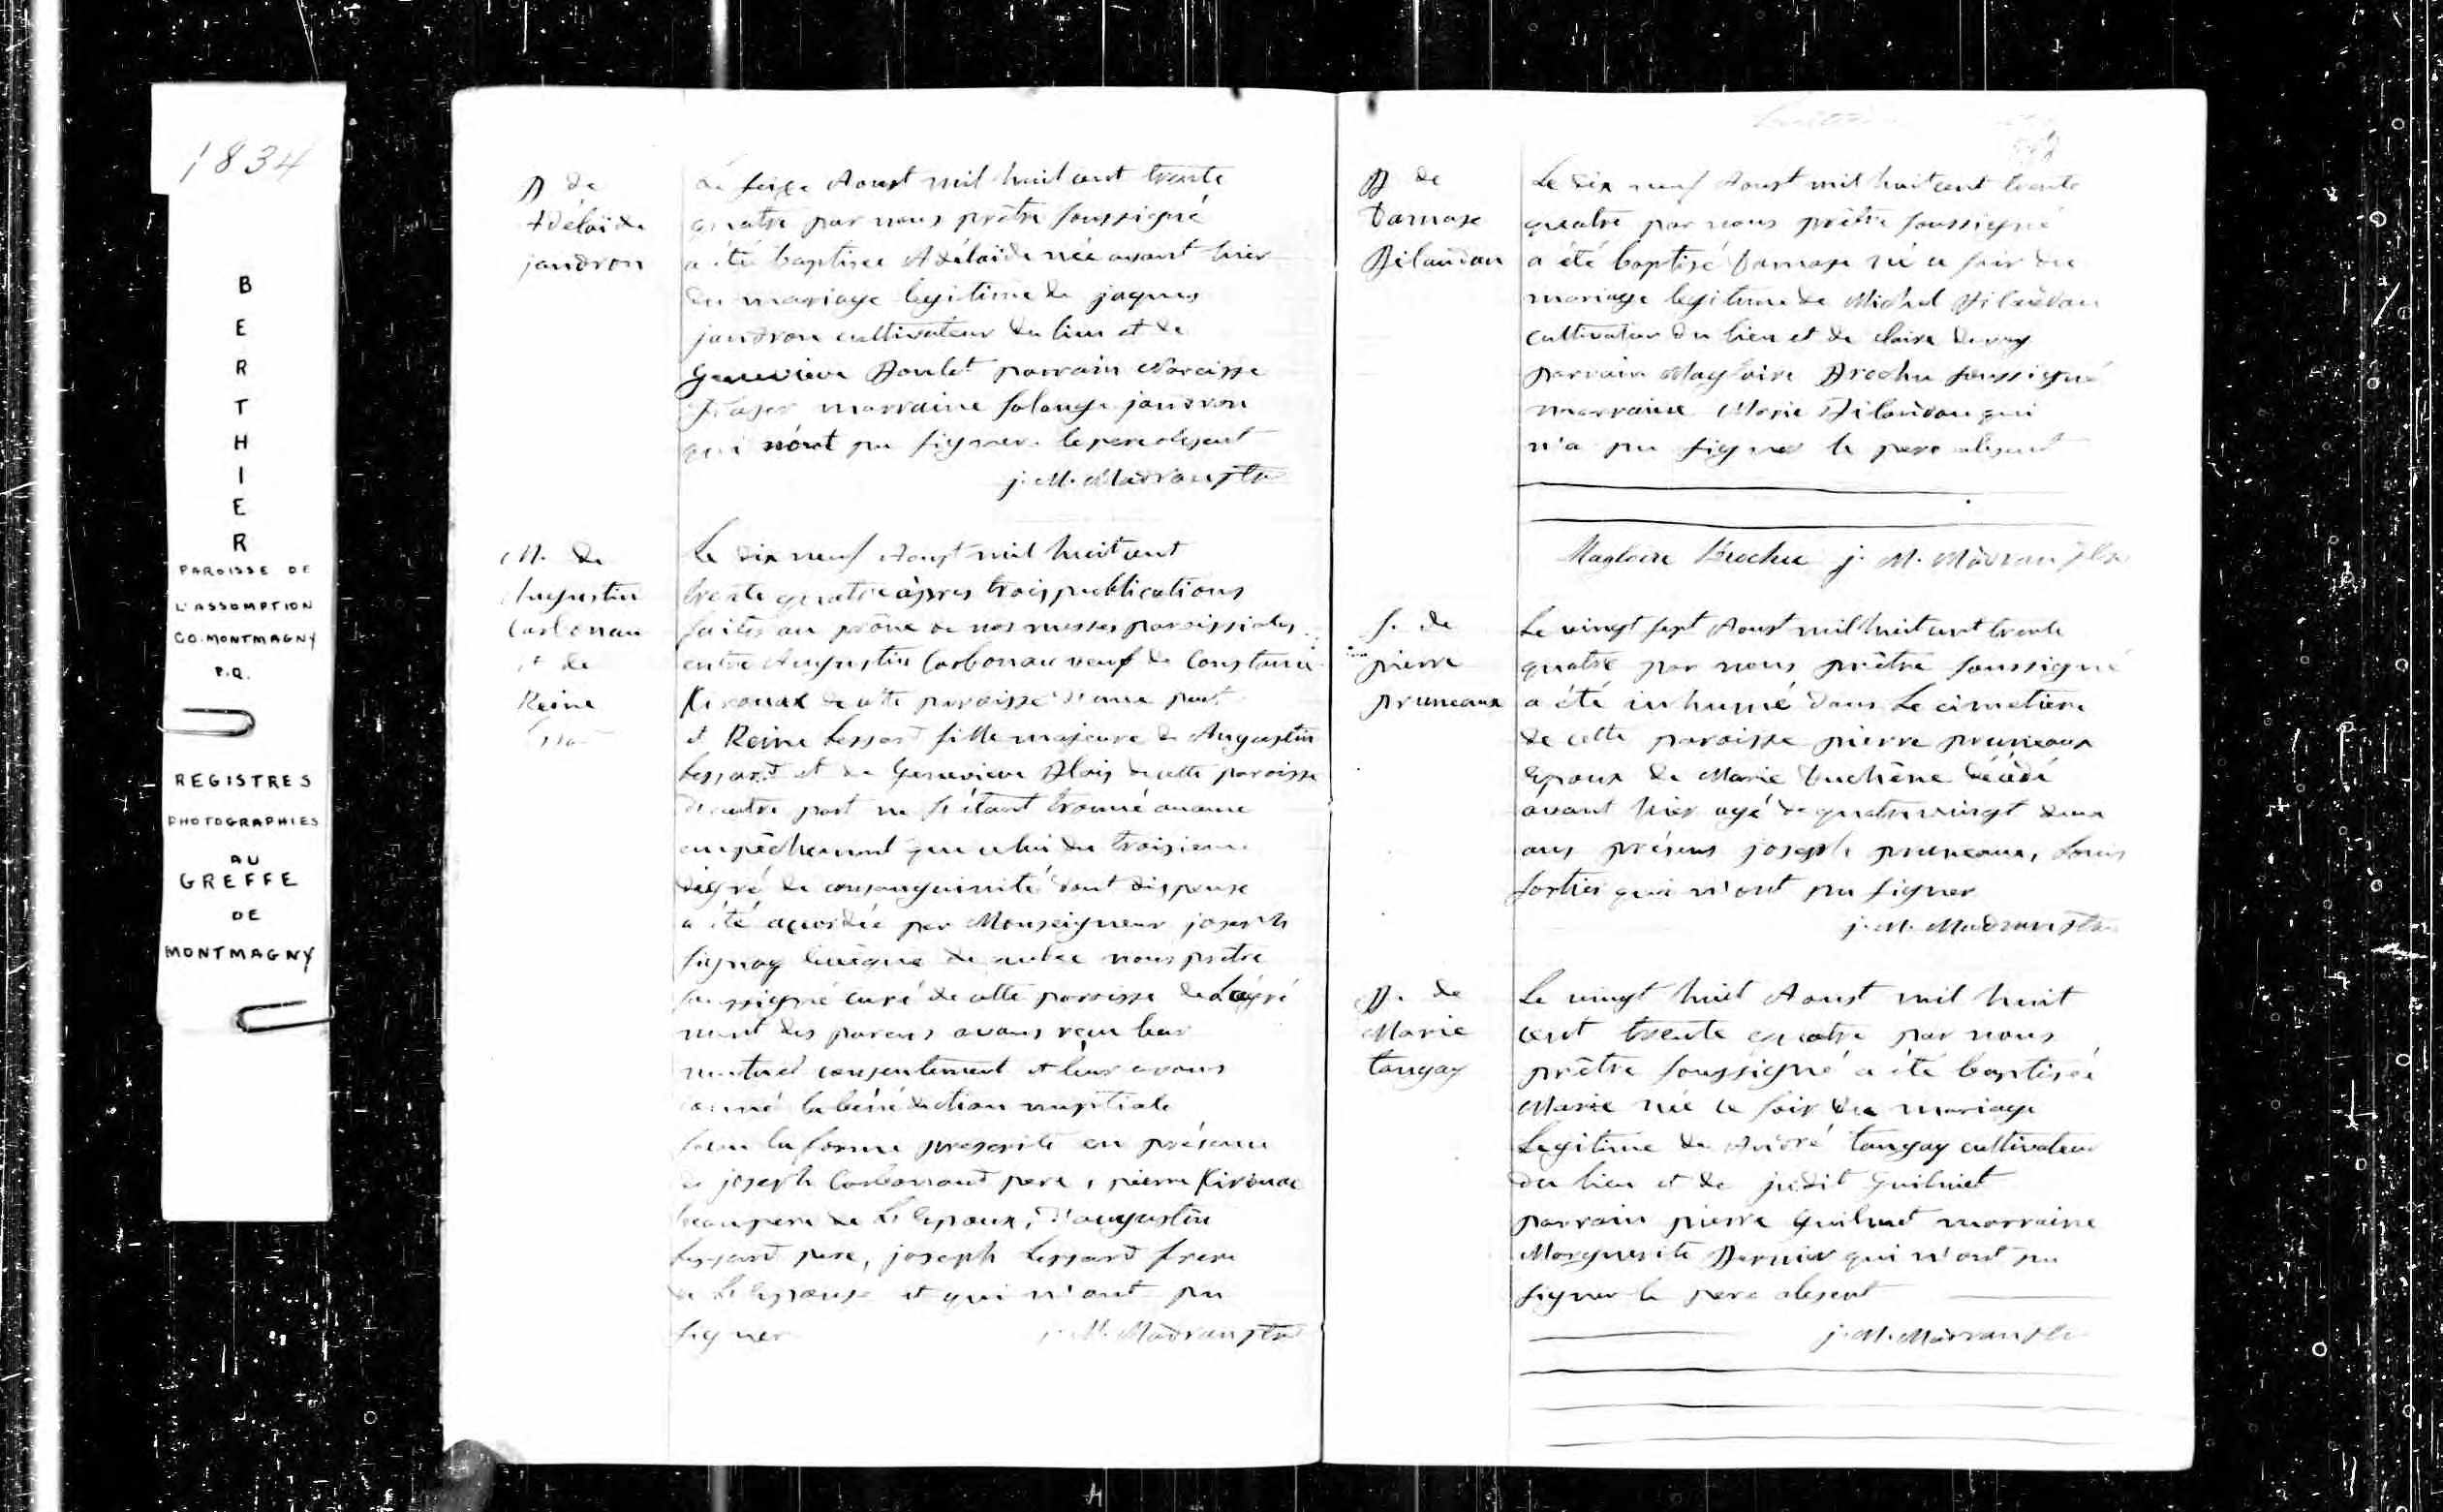 1834
BERTHIER
PAROISSE DE
L'ASSOMPTION
CO. MONTMAGNY
P.Q.
REGISTRES
PHOTOGRAPHIES
AU
GREFFE
DE
MONTMAGNY
B de
Adélaïde
jandron
Le seize Aoust mil huit cent trente
quatre par nous prêtre soussigné
a été baptisée Adélaïde née avant hier
du mariage legitime de jaques
jandron cultivateur du lieu et de
Genevieve Boulet parrain Narcisse
Fraser marraine solange jandron
qui n'ont pu signer. le pere absent
j. M. Madran ptre
M. de
Augustin
Carbonau
et de
Reine
Le dix neuf Aoust mil huit cent
trente quatre après trois publications
faites au prône de nos messes paroissiales
entre Augustin Carbonau veuf de Constance
Kirouax de cette paroisse d'une part
et Reine Lessard fille majeure de Augustin
Lessard et de Genevieve Blois de cette paroisse
d'autre part ne s'étant trouvé aucune
empêchement que celui du troisieme
degré de consanguinité dont dispense
a été accordée par Monseigneur joseph
signay Evêque de quebec nous prêtre
soussigné curé de cette paroisse de L'agré
ment des parens avons reçu leur
mutuel consentement et leur avons
donné la bénédiction nuptiale
selon la forme prescrite en présence
de joseph Carbonnaud pere, pierre Kirouac
beaupere de L'Epoux, d'augustin
Lessard pere, joseph Lessard frere
de L'Epouse et qui n'ont pu
signer j. M. Madran ptre
B de
Damase
Bilaudau
Le dix neuf Aoust mil huit cent trente
quatre par nous prêtre soussigné
a été baptisé Damase né ce soir du
mariage legitime de Michel Bilaudau
cultivateur du lieu et de claire
parrain Magloire Brochu soussigné
marraine Marie Bilaudau qui
n'a pu signer le pere absent
Magloire Brochu j. M. Madran ptre
S. de
pierre
pruneaux
Le vingt sept Aoust mil huit cent trente
quatre par nous prêtre soussigné
a été inhumé dans Le cimetiere
de cette paroisse pierre pruneaux
Epoux de Marie Duchêne décédé
avant hier agé de quatre vingt deux
ans présens joseph pruneaux, Louis
fortier qui n'ont pu signer
j. M. Madran ptre
B. de
Marie
tangay
Le vingt huit Aoust mil huit
cent trente quatre par nous
prêtre soussigné a été baptisée
Marie née ce soir du mariage
Legitime de André tangay cultivateur
du lieu et de judit Guilmet
parrain pierre Guilmet marraine
Marguerite Bernier qui n'ont pu
signer le pere absent
j. M. Madran ptre